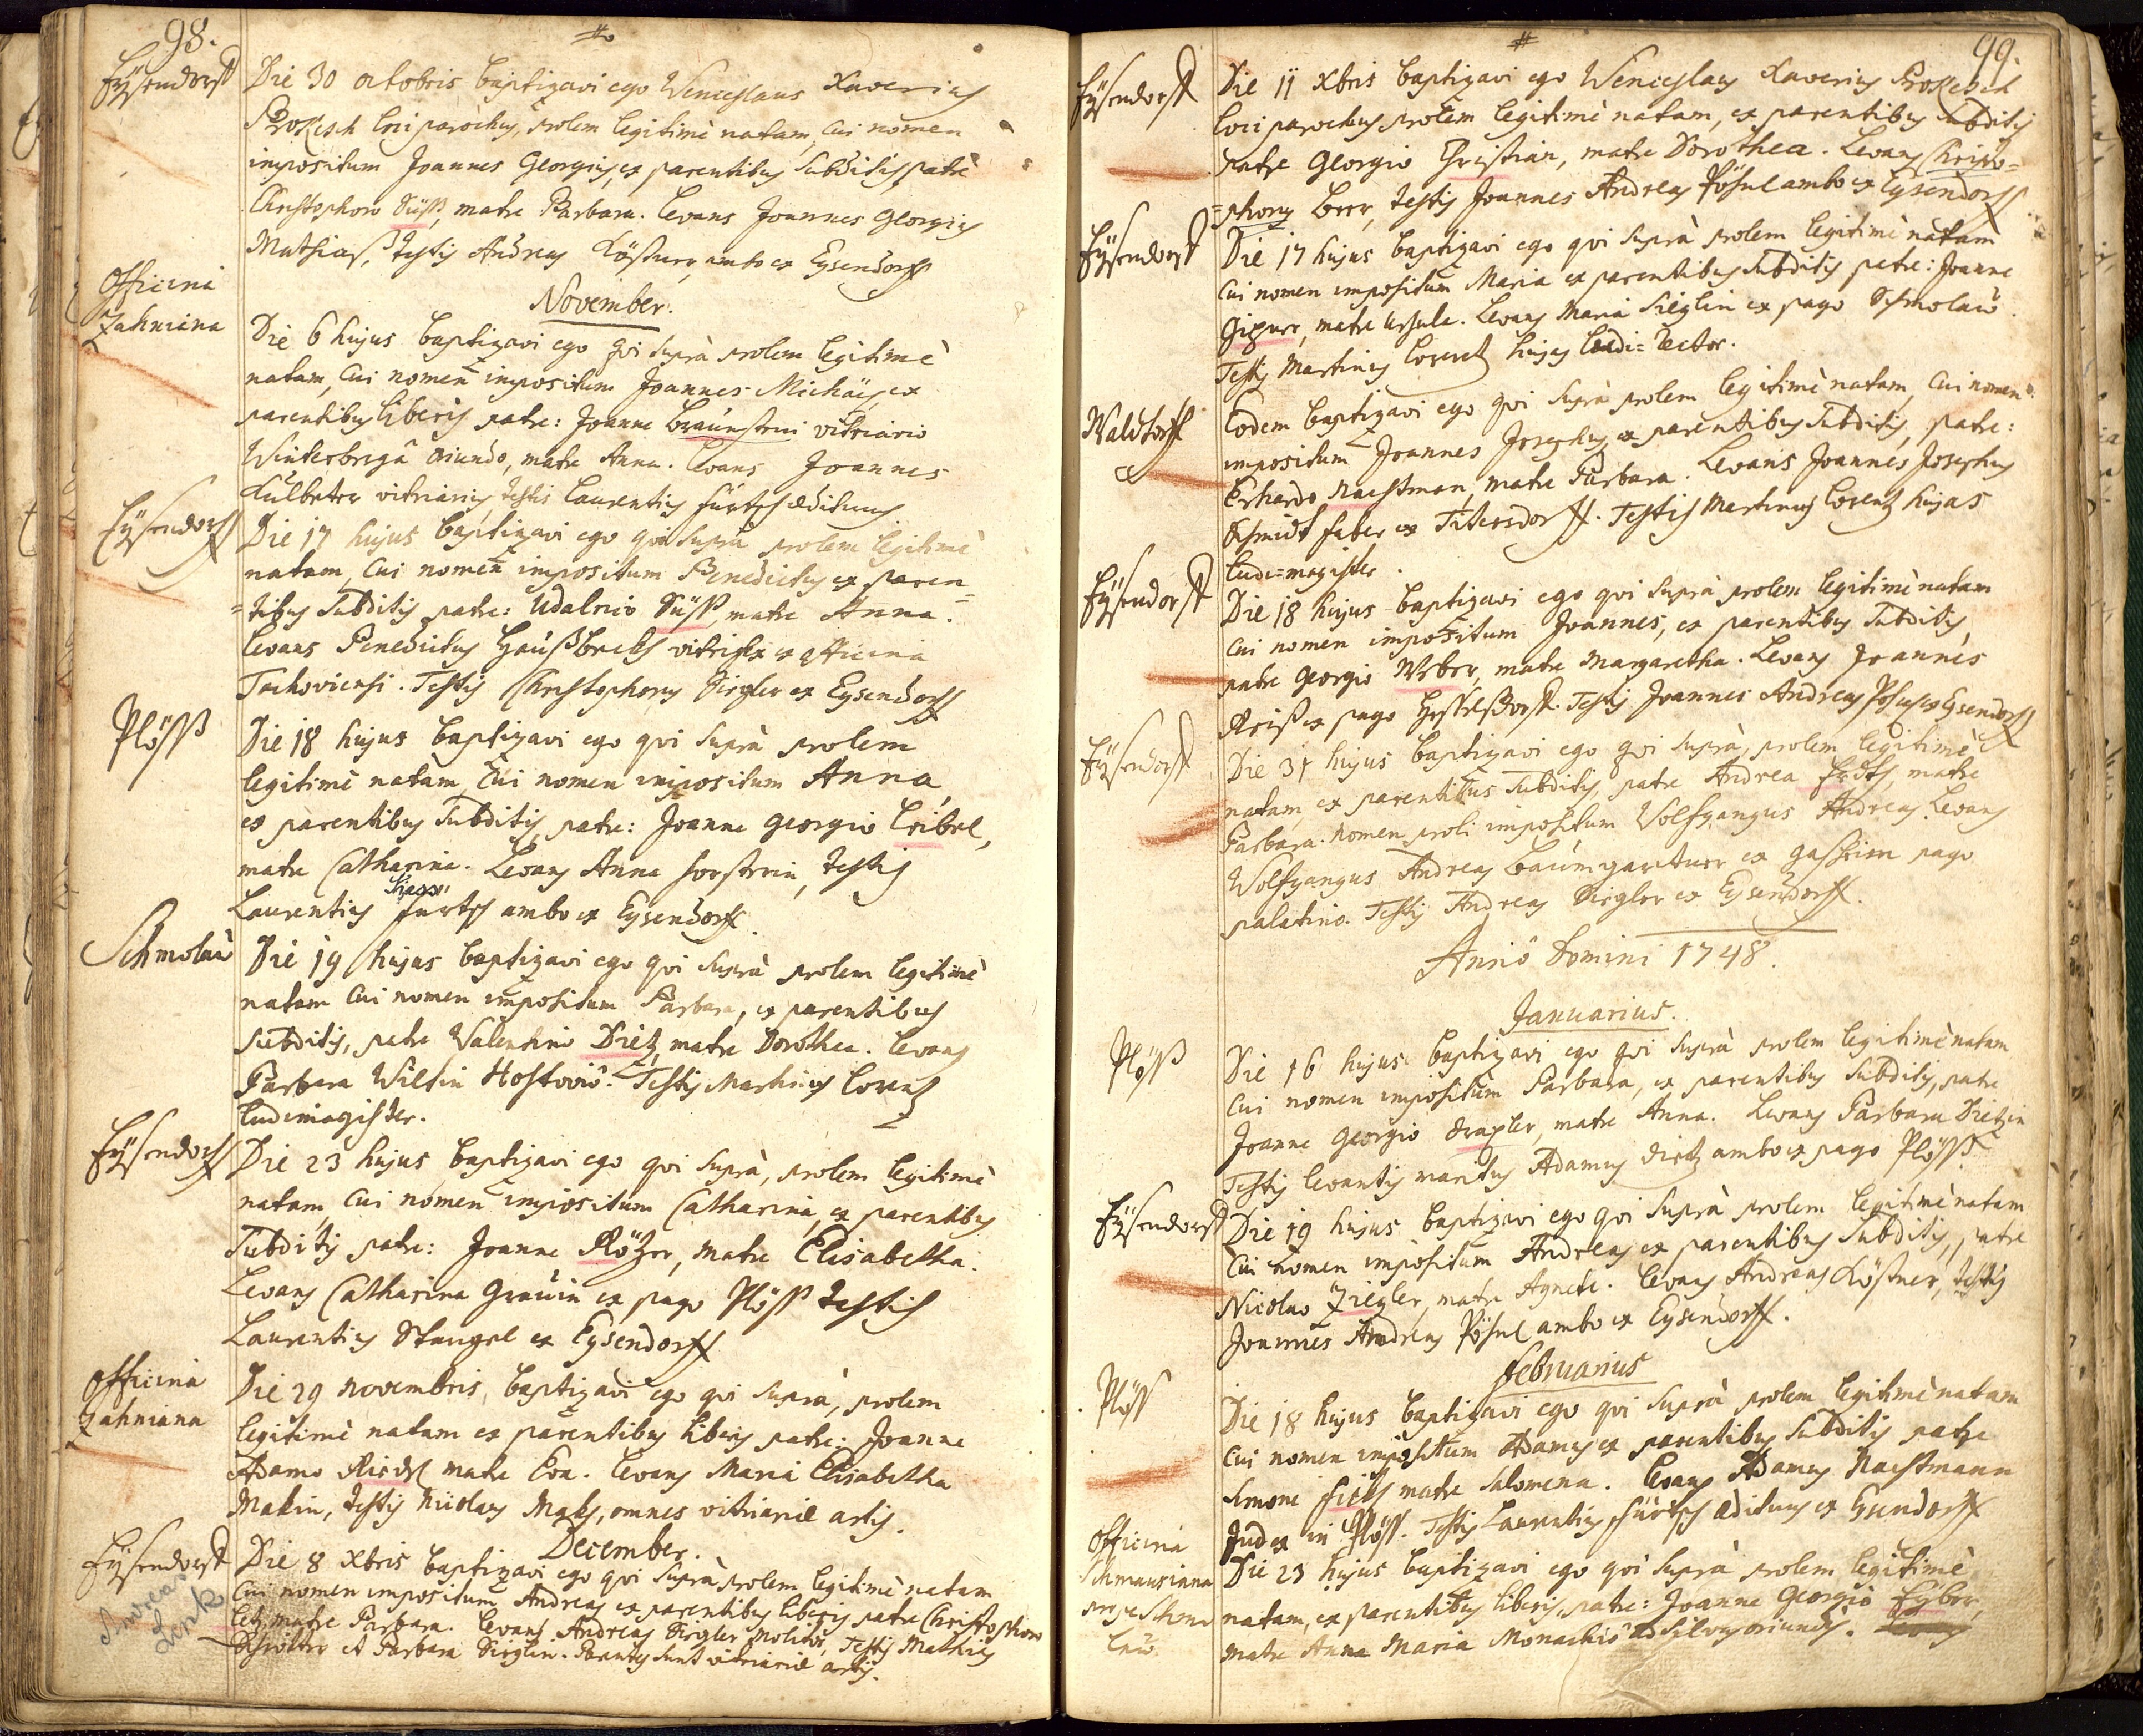 98.
Eÿsendorff
Die 30 octobris baptizavi ego Wenceslaus Xaverius
Prokesch loci parochus, prolem legitimè natam, cui nomen
impositum Joannes Georgius, ex parentibus subditis patre
Christophoro Süss, matre Barbara. Levans Joannes Georgius
Mathias, testis Andreas Kössner, ambo ex Eysendorff
November.
Officina
Zahniana
Die 6 hujus baptizavi ego qui suprà prolem legitimè
natam, cui nomen impositum Joannes Michäes, ex
parentibus liberis patre: Joanne vitriario
Winterbregâ oriundo, matre Anna. Levans Joannes
vitriarius, testis Laurentius fürtsch ædituus
Eÿsendorff
Die 17 hujus baptizavi ego qui suprà prolem legitimè
natam, cui nomen impositum Benedictus ex paren=
=tibus subditis patre: Udalrico Süss, matre Anna.
Levans Benedictus vitrifex ex officina
Tachoviensi. Testis Christophorus Sirgler ex Eysendorff
Plöss
Die 18 hujus baptizavi ego qui suprà prolem
legitimè natam, cui nomen impositum Anna,
ex parentibus subditis, patre: Joanne georgio Leibel,
matre Catharina. Levans Anna forstrin, testis
Laurentius fürtsch ambo ex Eysendorff.
Schmolau
Die 19 hujus baptizavi ego qui suprà prolem legitimè
natam cui nomen impositum Barbara, ex parentibus
subditis, patre Valentino Dietz, matre Dorothea. Levans
Barbara Wiltin Hostoviô. Testis Martinus Lorentz
ludimagister.
Eÿsendorff
Die 23 hujus baptizavi ego qui suprà, prolem legitimè
natam, cui nomen impositum Catharina, ex parentibus
subditis patre: Joanne Plötzer, matre Elisabetha.
Levans Catharina Grauin ex pago Plöss testis
Laurentius Stangel ex Eysendorff
officina
Zahniana
Die 29 novembris, baptizavi ego qui suprà, prolem
legitimè natam ex parentibus liberis patre: Joanne
Adamo Riedl matre Eva. Levans Maria Elisabetha
Makin, testis Nicolaus Maks, omnes vitriariæ artis.
December.
Eÿsendorff
Andreas
Lenk
Die 8 Xbris baptizavi ego qui suprà prolem legitimè natam
cui nomen impositum Andreas ex parentibus liberis patre Christophoro
matre Barbara. Levans Andreas Sirgler Molitor, testis Mathias
Schrötter et Barbara Sirglin. Parentes sunt vitriariæ artis.
99.
Eÿsendorff
Die 11 Xbris baptizavi ego Wenceslaus Xaverius Prokesch
loci parochus prolem legitimè natam, ex parentibus subditis
patre Georgio Christian, matre Dorothea. Levans Christo=
=phorus Beer, testis Joannes Andreas Pösnel ambo ex Eysendorff
Eÿsendorff
Die 17 hujus baptizavi ego qui suprà prolem legitimè natam
cui nomen impositum Maria ex parentibus subditis patre: Joanne
matre Ursula. Levans Maria Sieglin ex pago Schmolau.
Testis Martinus Lorentz hujas Ludi=Rector.
Waldorff
Eodem baptizavi ego qui suprà prolem legitimè natam, cui nomen
impositum Joannes Josephus, ex parentibus subditis, patre:
Erhardo Nachtman, matre Barbara. Levans Joannes Josephus
Schmidt faber ex Titersdorff. Testis Martinus Lorentz hujas
Ludi=magister.
Eÿsendorff
Die 18 hujus baptizavi ego qui suprà prolem legitimè natam
cui nomen impositum Joannes, ex parentibus subditis
patre Georgio Weber, matre Margaretha. Levans Joannes
ex pago Testis Joannes Andreas Pösnel ex Eysendorff
Eÿsendorff
Die 31 hujus baptizavi ego qui suprà, prolem legitimè
natam, ex parentibus subditis, patre Andrea matre
Barbara. Nomen proli impositum Wolfgangus Andreas. Levans
Wolfgangus Andreas Baumgartner ex pago
palatino. Testis Andreas Sirgler ex Eysendorff.
Annô Domini 1748.
Januarius.
Plöss
Die 16 hujus baptizavi ego qui suprà prolem legitimè natam
cui nomen impositum Barbara, ex parentibus subditis, patre
Joanne Georgio Draxler, matre Anna. Levans Barbara Dietzin
Testis levantis maritus Adamus Dietz ambo ex pago Plöss.
Eÿsendorff
Die 19 hujus baptizavi ego qui suprà prolem legitimè natam
cui nomen impositum Andreas ex parentibus subditis, patre
Nicolao Ziegler, matre Agnete. Levans Andreas Kössner, testis
Joannes Andreas Pösnel ambo ex Eysendorff.
februarius
Plöss
Die 18 hujus baptizavi ego qui suprà prolem legitimè natam
cui nomen impositum Adamus ex parentibus subditis patre
Simone matre Salomena. Levans Adamus Nachtmann
Judex in Plöss. Testis Laurentius fürtsch ædituus ex Eysendorff
Officina
Schmausiana
prope Schmo
lau
Die 23 hujus baptizavi ego qui suprà prolem legitimè
natam, ex parentibus liberis, patre: Joanne Georgio Eyber,
matre Anna Maria Monachiô ad Silvas oriundis. Levans